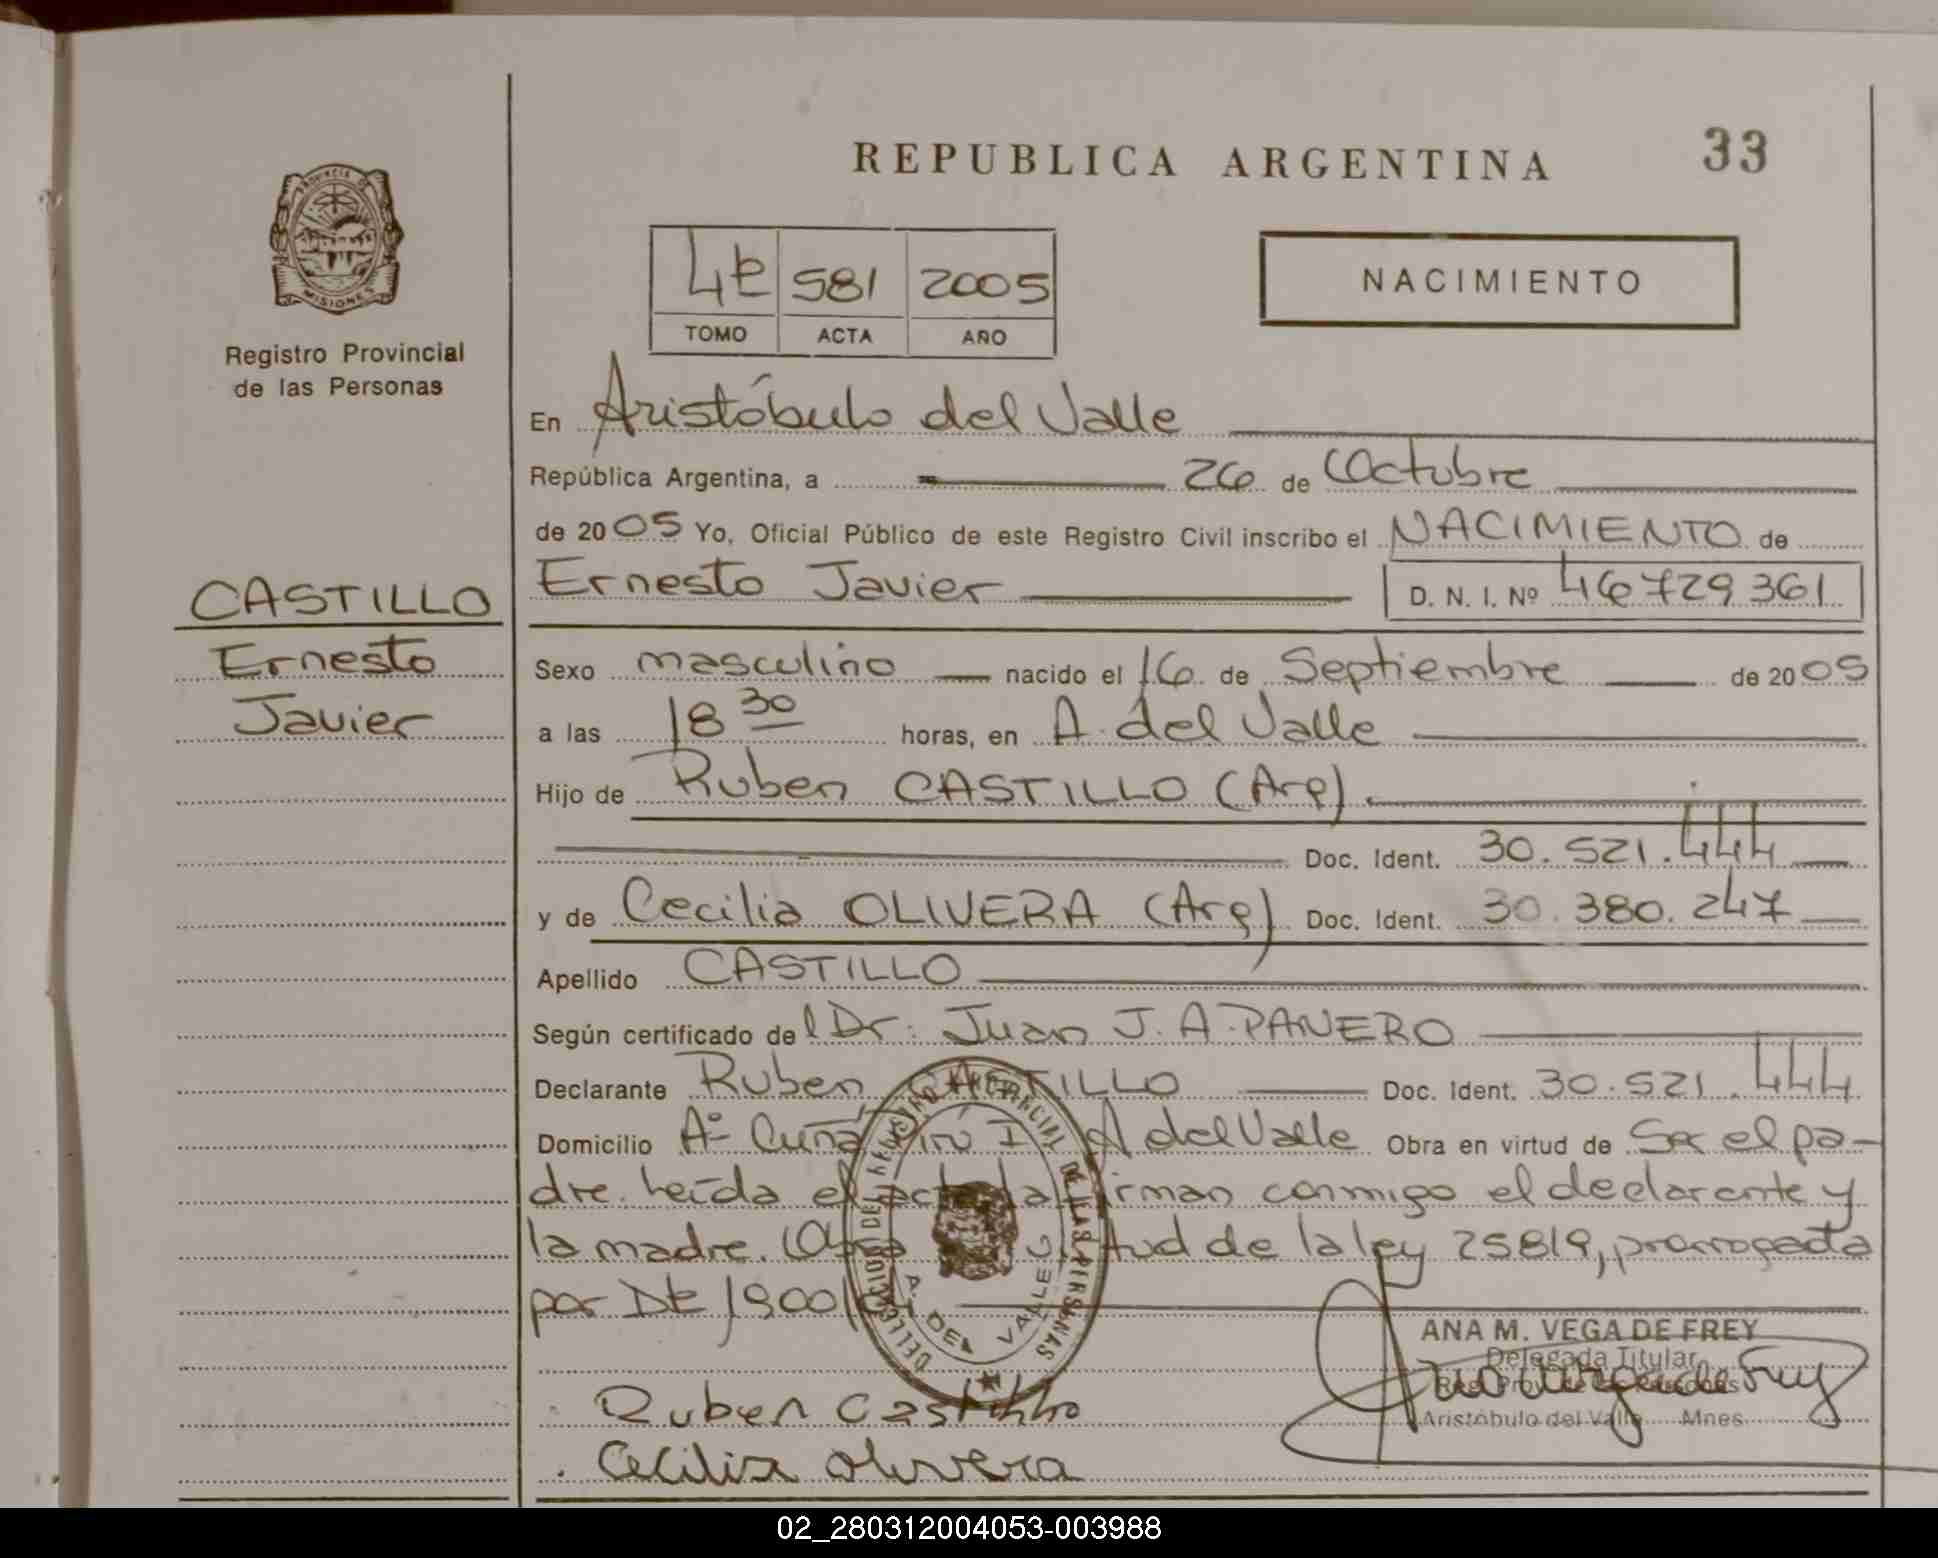 REPUBLICA ARGENTINA
33
PROVINCIA DE
MISIONES
Registro Provincial
de las Personas
4t 581 2005
TOMO ACTA AÑO
NACIMIENTO
En Aristóbulo del Valle
República Argentina, a 26 de Octubre
de 2005 Yo, Oficial Público de este Registro Civil inscribo el NACIMIENTO de
CASTILLO
Ernesto
Javier
Ernesto Javier D. N. I. Nº 46729361
Sexo masculino nacido el 16 de Septiembre de 2005
a las 18 30 horas, en A. del Valle
Hijo de Ruben CASTILLO (Arg)
Doc. Ident. 30.521.444
y de Cecilia OLIVERA (Arg) Doc. Ident. 30.380.247
Apellido CASTILLO
Según certificado del Dr. Juan J. A. PANERO
Declarante Ruben CASTILLO Doc. Ident. 30.521.444
Domicilio Aº Cuñá Pirú I A del Valle Obra en virtud de Ser el pa-
dre. Leída el acta la firman conmigo el declarante y
la madre. Obra en virtud de la ley 25819, prorrogada
por Dt 1900
DELEGACION DEL REGISTRO PROVINCIAL DE LAS PERSONAS
A. DEL VALLE
ANA M. VEGA DE FREY
Delegada Titular
Reg. Prov. de las Personas
Aristóbulo del Valle Mnes
Ruben Castillo
Cecilia olivera
02_280312004053-003988